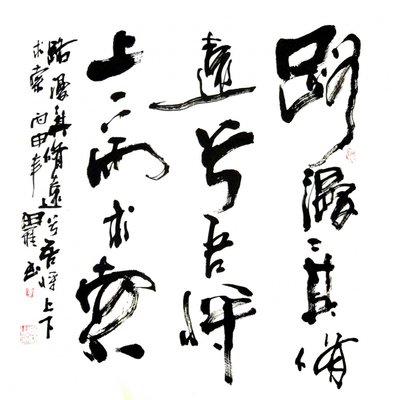 路漫々其修
遠兮吾将
上下而求索
路漫其修遠兮吾将上下
求索 丙申年